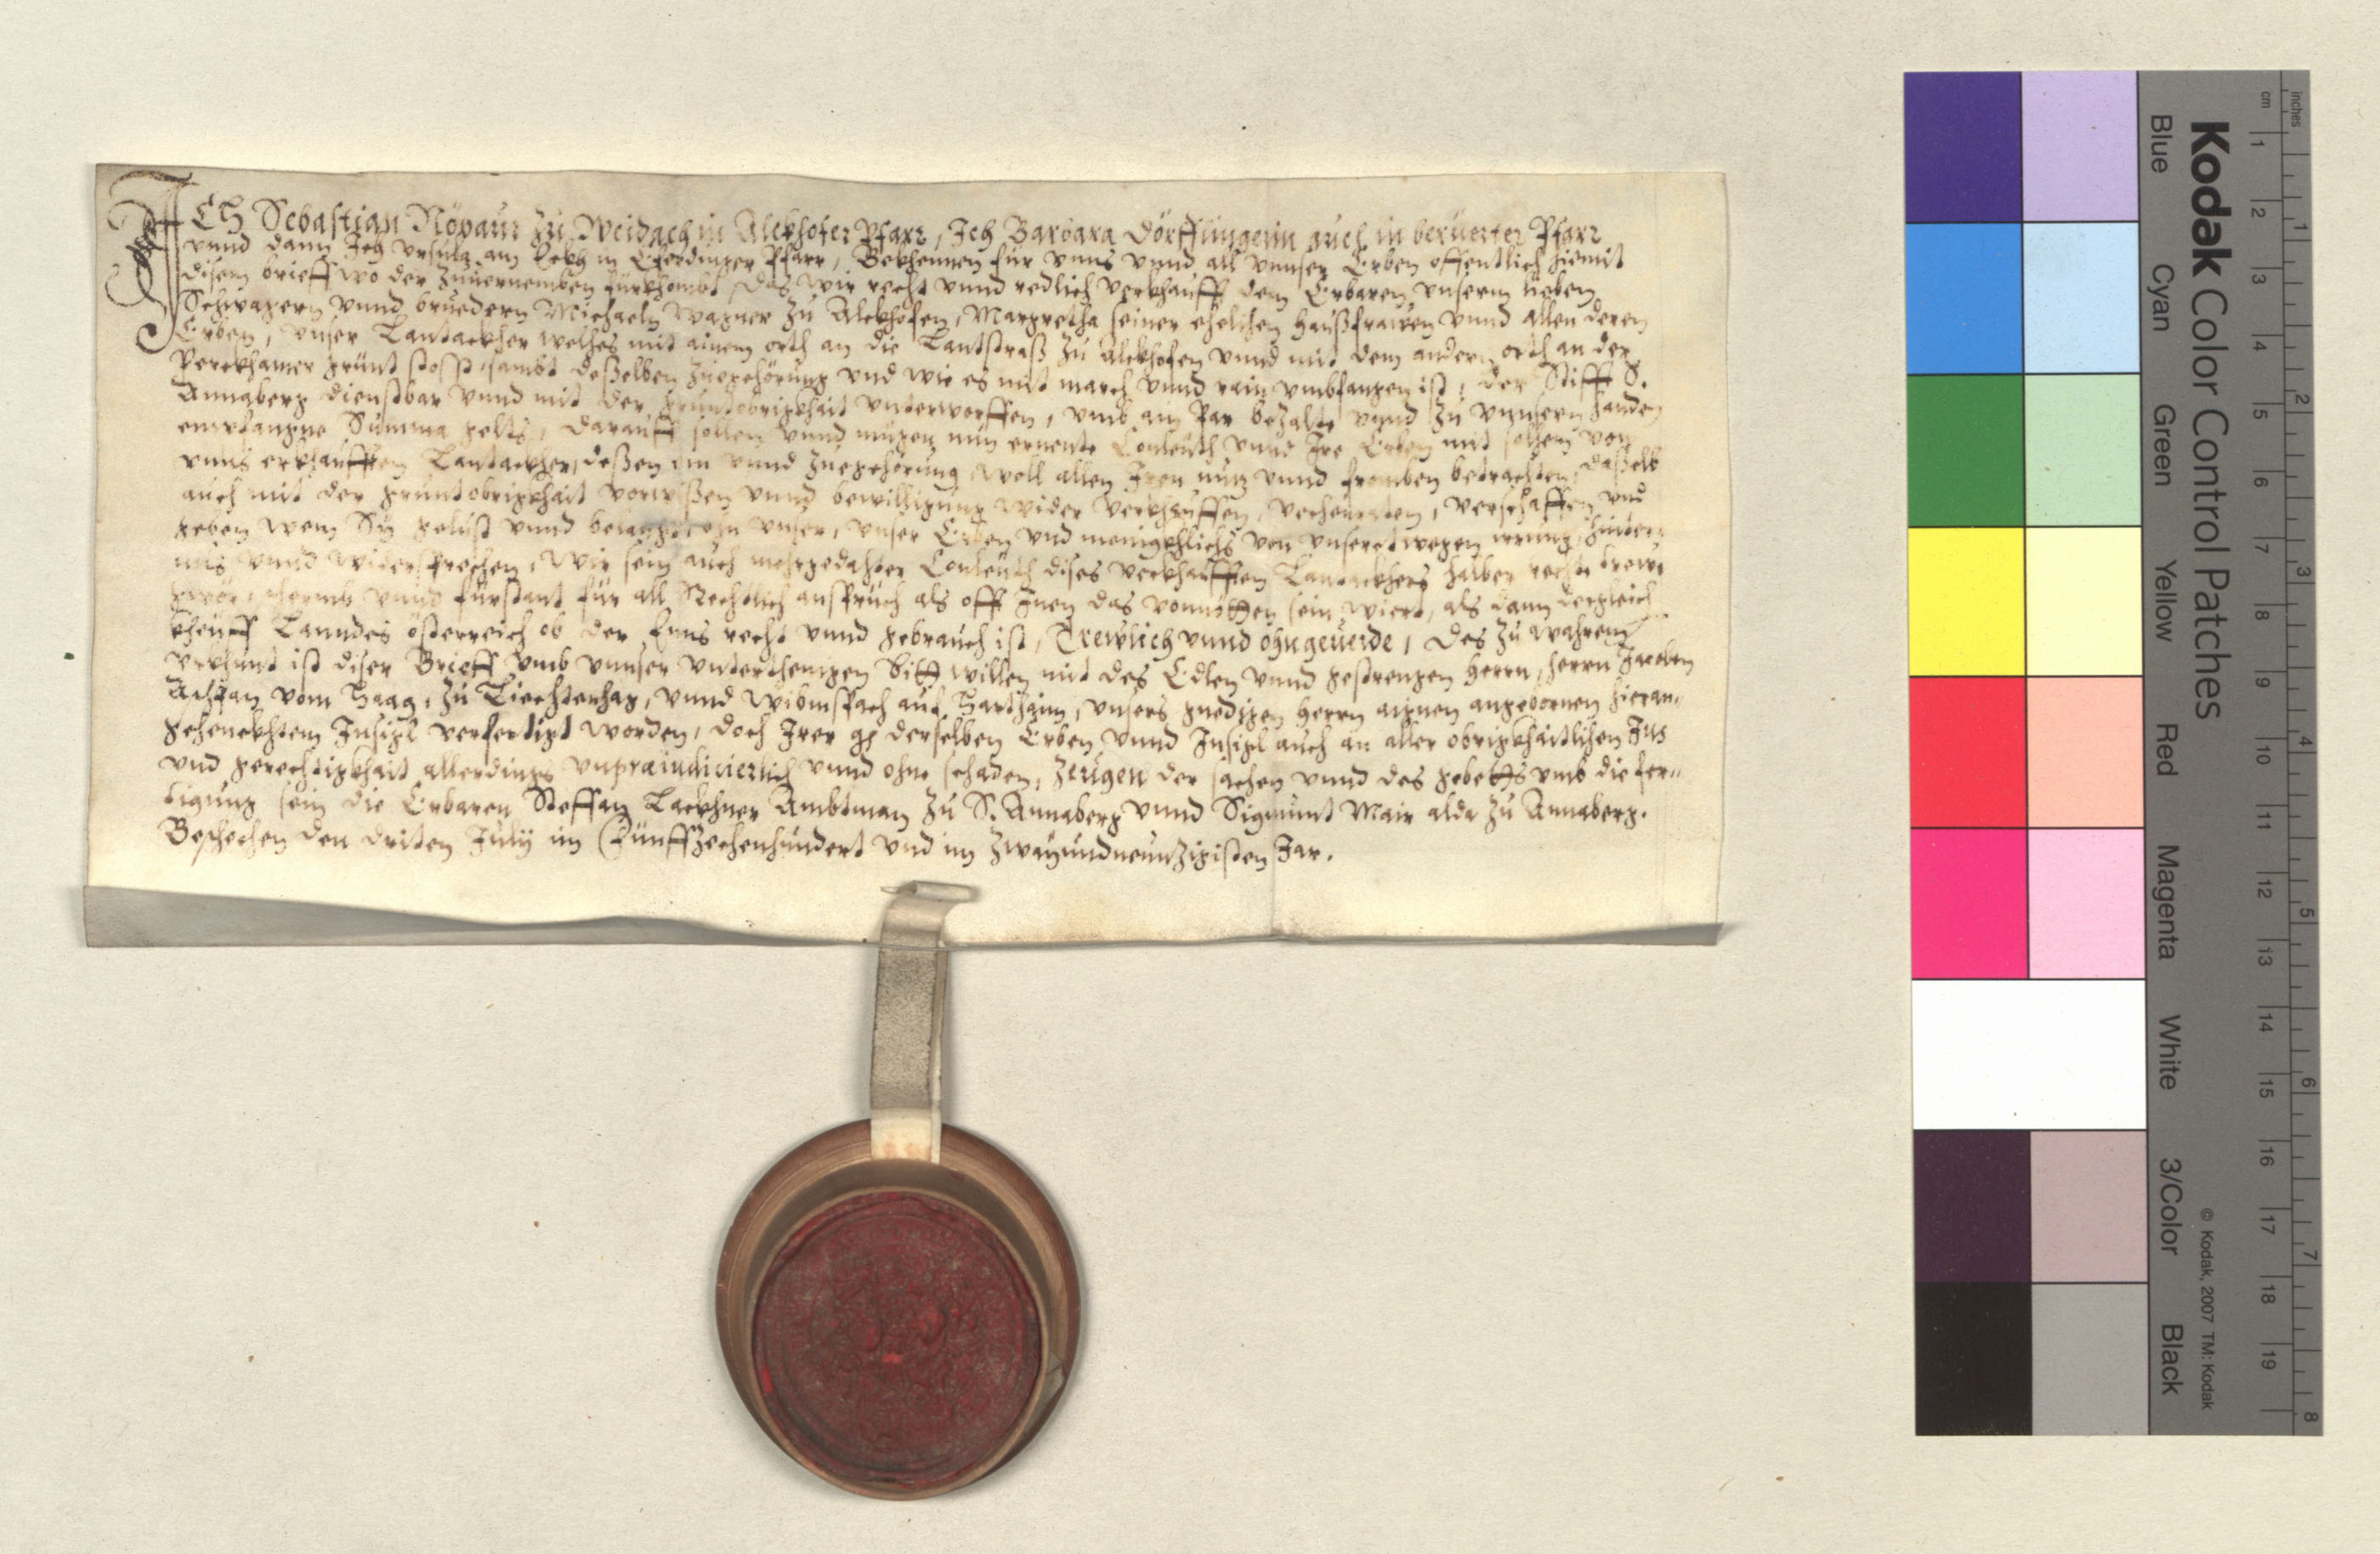 ICH Sebastian Nöpaur zu Weidach in Alekhofer Pfarr, Ich Barbara Dörfflingerin auch in beruerter Pfarr
vnnd dann Ich Vrsula am in Eferdinger Pfarr, Bekhennen für vnns vnnd all vnnser Erben offentlich hiemit
disem brieff wo der zuuernemben fürkhombt, Das wir recht vnnd redlich verkhaufft dem Erbaren vnserm lieben
Schwagern vnnd bruedern Michaeln Wagner zu Alekhofen, Margretha seiner ehelichen haußfrawen vnnd allen deren
Erben, vnser Lantackher welches mit ainem orth an die Lantstraß zu Alekhofen vnnd mit dem andern orth an der
Perckhamer grünt stosst, sambt deßelben zuegehörung vnd wie es mit march vnnd rain vmbfangen ist, der Stifft S.
Annaberg dienstbar vnnd mit der gruntobrigkhait vnterworffen, vmb ain Par bezalte vnnd zu vnnsern handen
empfangne Summa gelts, darauff sollen vnnd mügen nun ernente Conleuth vnnd Ire Erben mit sollem von
vnns erkhaufften Lantackher, deßen in vnnd zuegehörung woll allen Iren nuz vnnd fromben betrachten, daßelb
auch mit der gruntobrigkhait vorwißen vnnd bewilligung wider verkhauffen, verheuraten, verschaffen vnd
geben wem Sÿ gelust vnnd verlangt ohn vnser, vnser Erben vnd menigkhlichs von vnsertwegen irrung, hinter-
nus vnnd widersprechen, Wir sein auch mehrgedachter Conleuth dises verkhaufften Lantackhers halber recht trewe
gwör, schermb vnnd fürstant für all Rechtlich anspruch als offt Inen das vonnötten sein wiert, als dann dergleich
kheuff Lanndes österreich ob der Enns recht vnnd gebrauch ist, Trewlich vnnd ohngeuerde, Des zu wahrem
vrkhunt ist diser Brieff vmb vnnser vnterthenigen bitt willen mit des Edlen vnnd gestrengen Herrn, herrn Jacoben
Aschan vom Haag, zu Liechtenhag, vnnd Wibmspach auf Harthaim, vnsers gnedigen herrn aignen angebornen hieran-
gehenckhtem Insigl verfertigt worden, doch Irer gl derselben Erben vnnd Insigl auch an aller obrigkhaitlichen Jus
vnd gerechtigkhait allerdings vnpraiudicierlich vnnd ohne schaden, Zeugen der sachen vnnd des gebetts vmb die fer-
tigung sein die Erbaren Steffan Lackhner Ambtman zu S. Annaberg vnnd Sigmunt Mair alda zu Annaberg.
Beschehen den driten Julÿ im Fünffzechenhundert vnd im zwayundneunzigisten Jar.
Kodak Color Control Patches
© Kodak, 2007 TM: Kodak
Blue Cyan Green Yellow Red Magenta White 3/Color Black
cm 1 2 3 4 5 6 7 8 9 10 11 12 13 14 15 16 17 18 19
inches 1 2 3 4 5 6 7 8